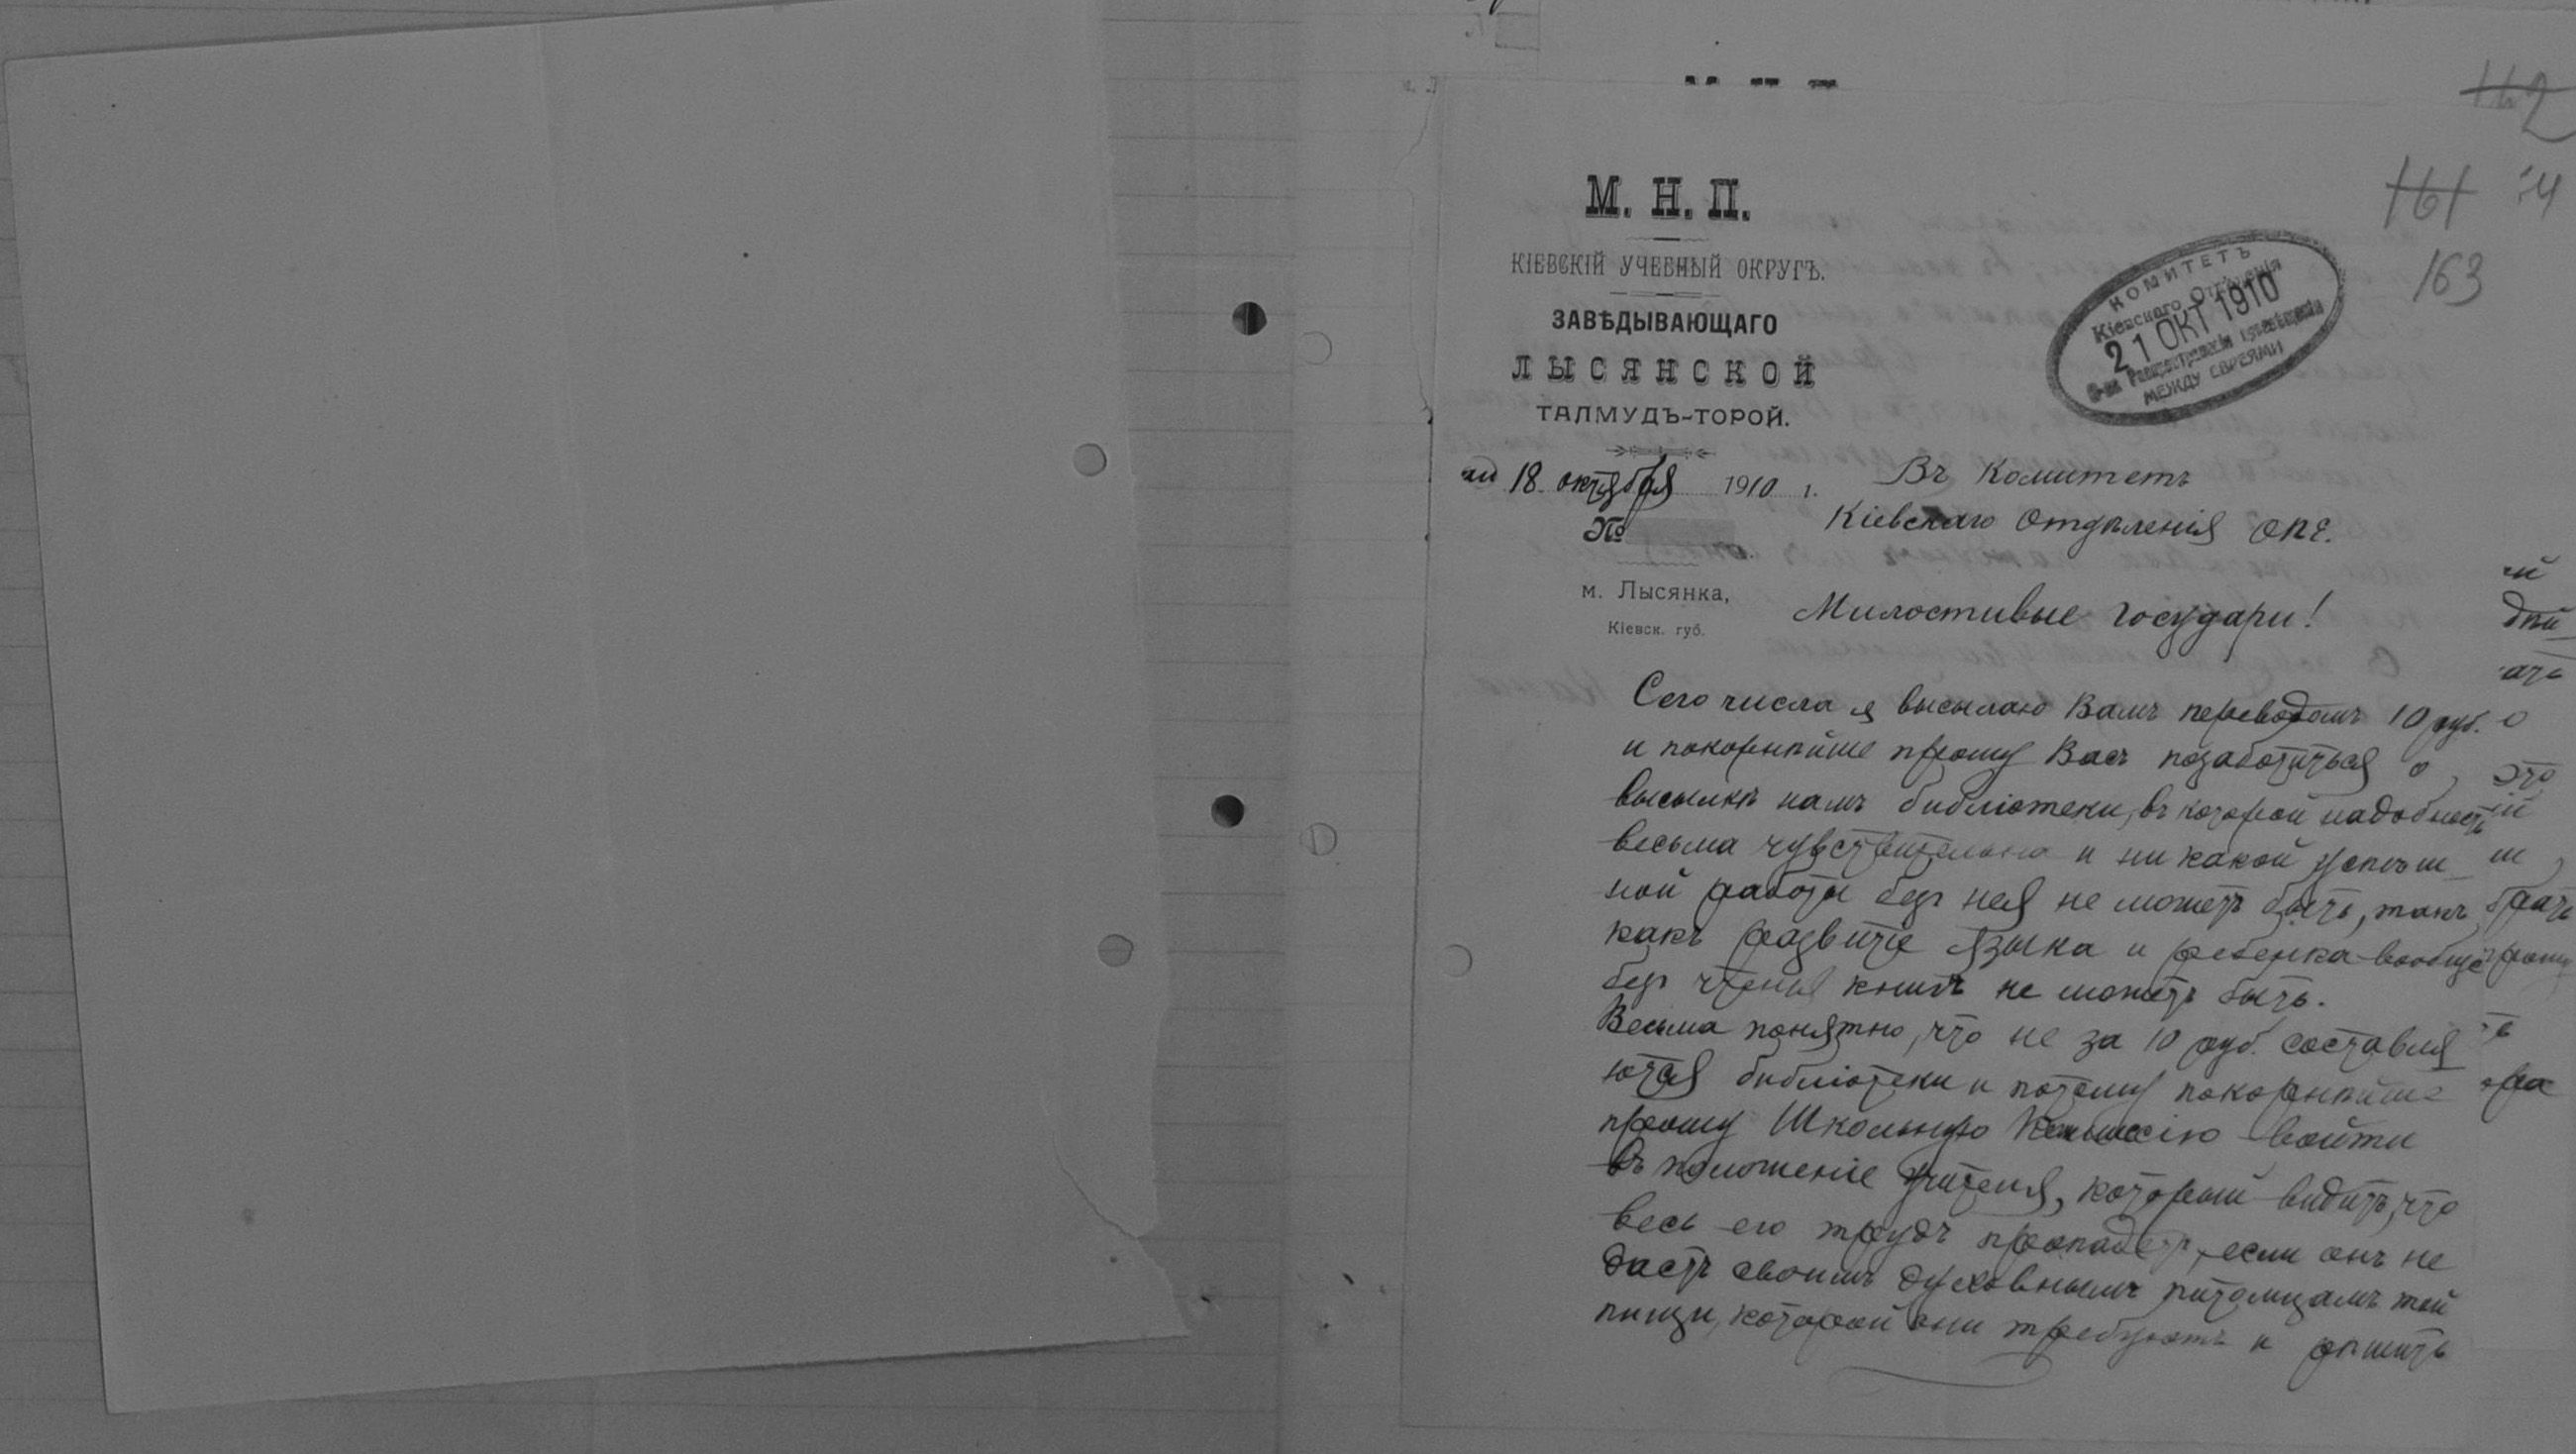 142
161
163
М. Н. П.
КІЕВСКІЙ УЧЕБНЫЙ ОКРУГЪ.
ЗАВѢДЫВАЮЩАГО
ЛЫСЯНСКОЙ
ТАЛМУДЪ-ТОРОЙ.
КОМИТЕТЪ
Кіевскаго Отдѣленія
21 ОКТ 1910
О-ва Распространенія просвѣщенія
МЕЖДУ ЕВРЕЯМИ
18 октября 1910 г.
№
м. Лысянка,
Кіевск. губ.
Въ Комитетъ
Кіевскаго Отдѣленія ОПЕ.
Милостивые Государи!
Сего числа я высылаю Вамъ переводомъ 10 руб.
и покорнѣйше прошу Васъ позаботиться о
высылкѣ намъ библіотеки, въ которой надобность
весьма чувствительна и ни какой успѣш
ной работы безъ нея не можетъ быть, такъ
какъ развитіе языка и ребенка вообще
безъ чтенія книгъ не можетъ быть.
Весьма понятно, что не за 10 руб. составля
ются библіотеки и потому покорнѣйше
прошу Школьную Комиссію войти
въ положеніе учителя, который видитъ, что
весь его трудъ пропадетъ, если онъ не
дастъ своимъ духовнымъ питомцамъ той
пищи, которой они требуютъ и рѣшить